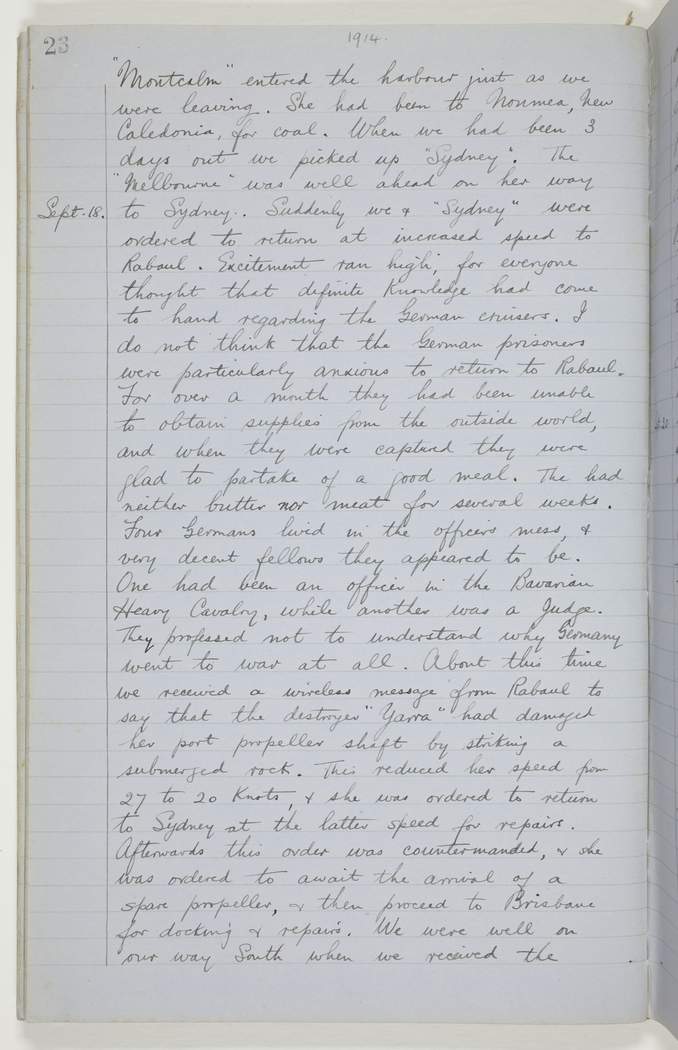 23
1914.
"Montcalm" entered the harbour just as we
were leaving. She had been to Noumea, New
Caledonia, for coal. When we had been 3
days out we picked up "Sydney". The
"Melbourne" was well ahead on her way
Sept. 18. to Sydney. Suddenly we & "Sydney" were
ordered to return at increased speed to
Rabaul. Excitement ran high, for everyone
thought that definite Knowledge had come
to hand regarding the German cruisers. I
do not think that the German prisoners
were particularly anxious to return to Rabaul.
For over a month they had been unable
to obtain supplies from the outside world,
and when they were captured they were
glad to partake of a good meal. The had
neither butter nor meat for several weeks.
Four Germans lived in the officers mess, &
very decent fellows they appeared to be.
One had been an officer in the Bavarian
Heavy Cavalry, while another was a Judge.
They professed not to understand why Germany
went to war at all. About this time
we received a wireless message from Rabaul to
say that the destroyer "Yarra" had damaged
her port propeller shaft by striking a
submerged rock. This reduced her speed from
27 to 20 Knots, & she was ordered to return
to Sydney at the latter speed for repairs.
Afterwards this order was countermanded, & she
was ordered to await the arrival of a
spare propeller, & then proceed to Brisbane
for docking & repairs. We were well on
our way South when we received the